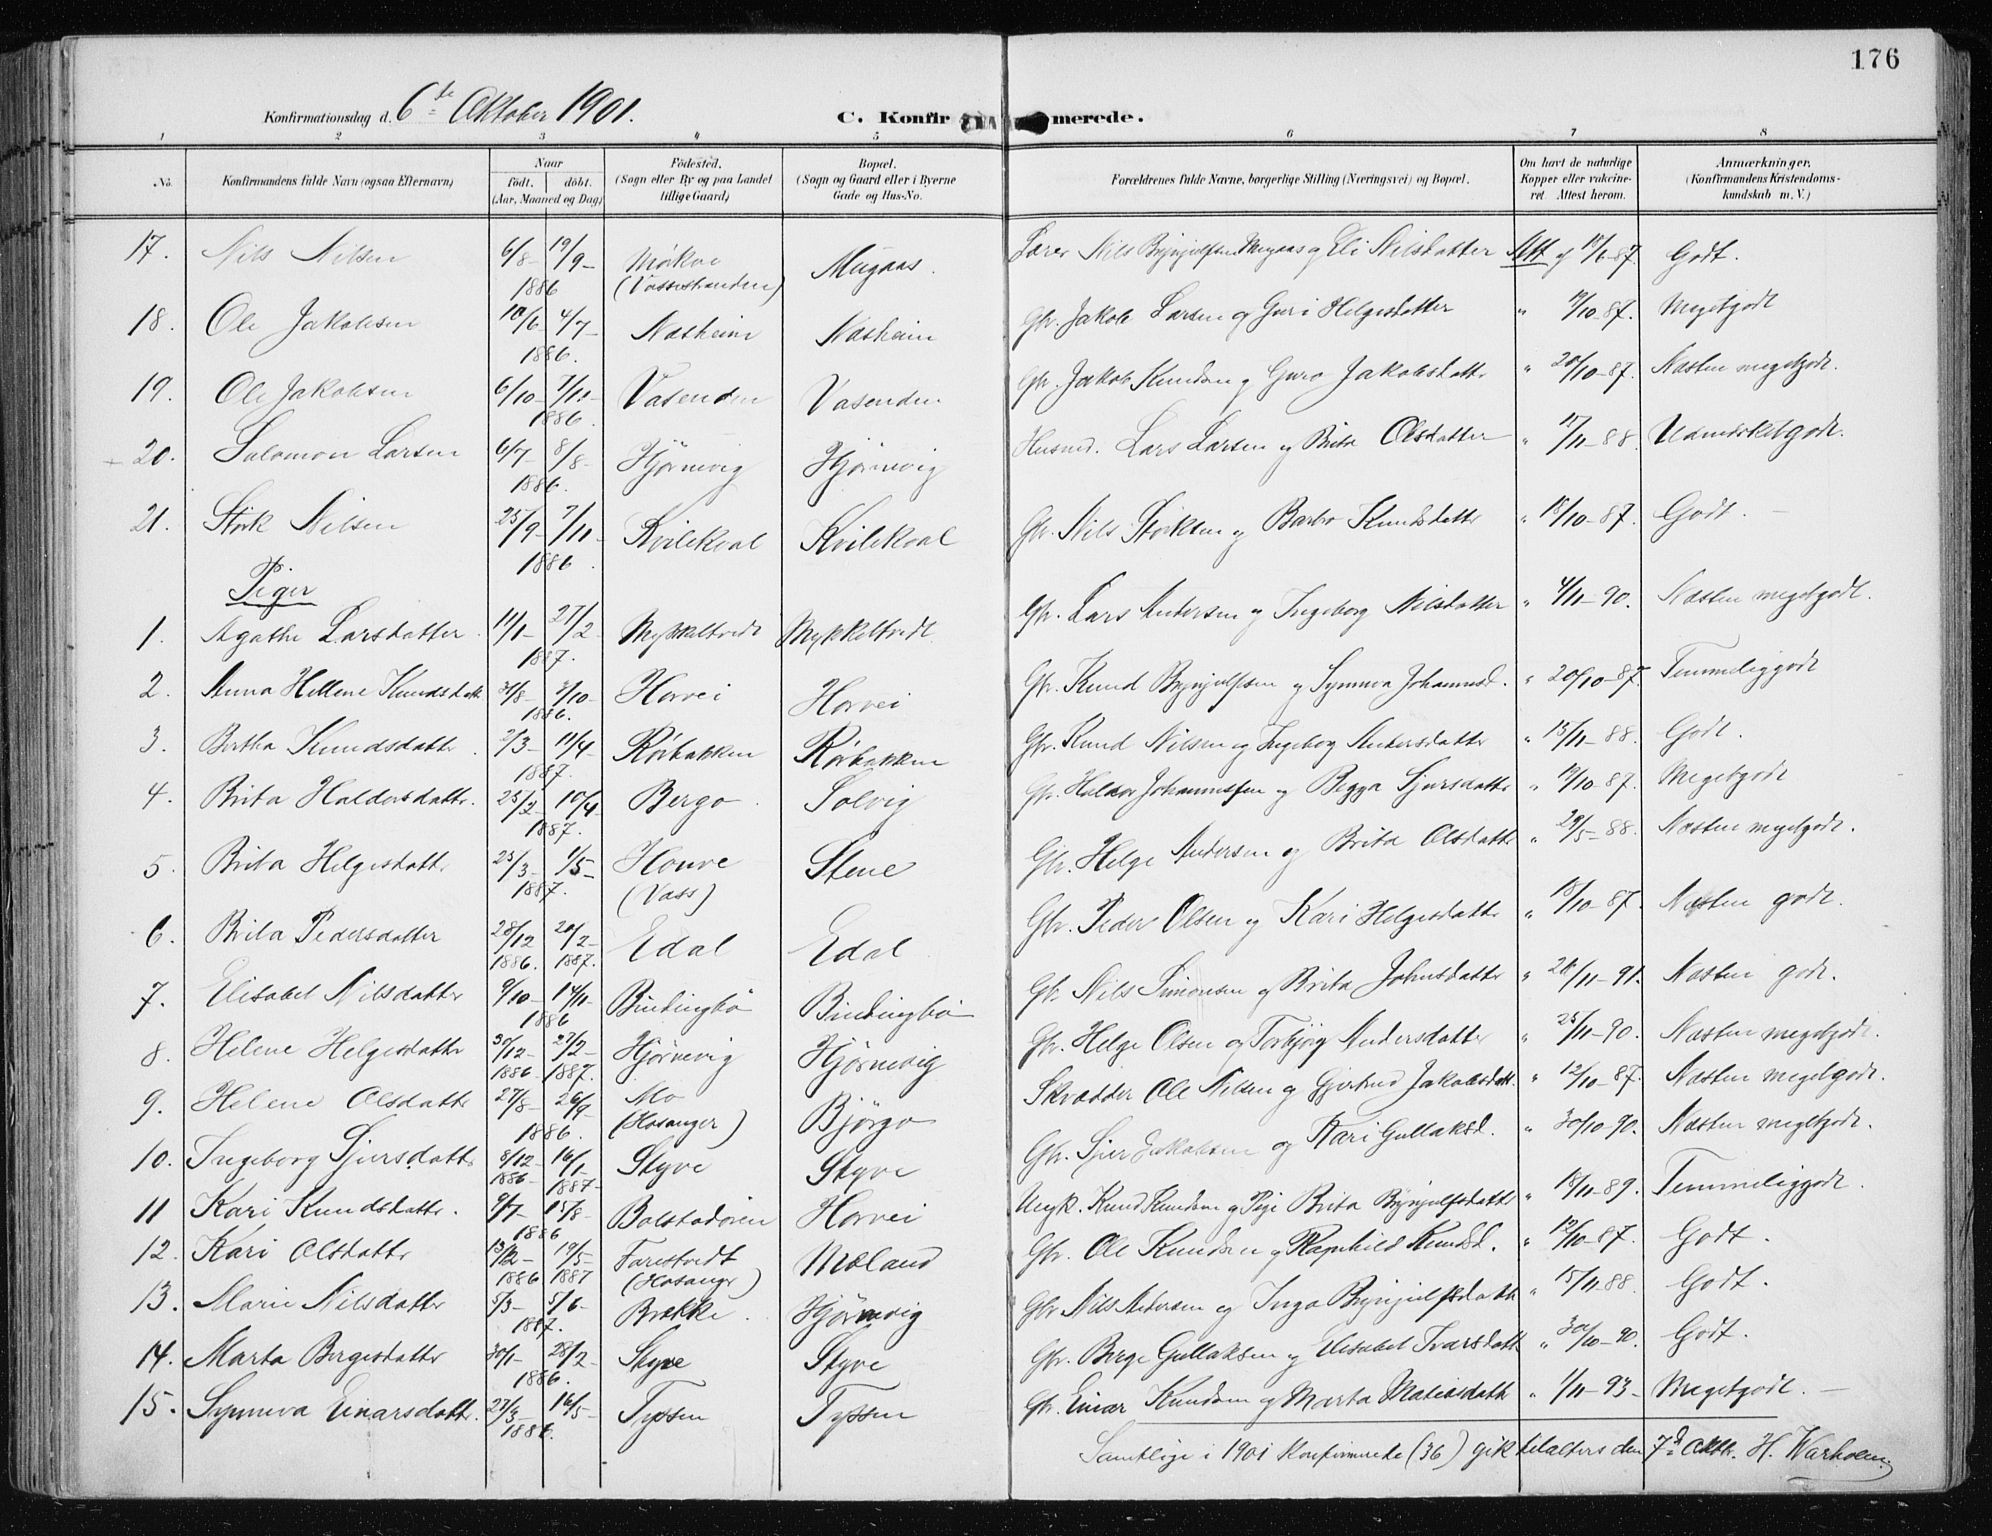 176
Konfirmationsdag d. 6te Oktober 1901.
C. Konfirmerede.
1 2 3 4 5 6 7 8
No. Konfirmandens fulde Navn (ogsaa Efternavn) Naar født. døbt. (Aar, Maaned og Dag) Födested. (Sogn eller By og paa Landet tillige Gaard) Bopæl. (Sogn og Gaard eller i Byerne Gade og Hus-No. Forældrenes fulde Navne, borgerlige Stilling (Næringsvei) og Bopæl. Om havt de naturlige Kopper eller vakcineret. Attest herom. Anmærkninger. (Konfirmandens Kristendomskundskab m. V.)
17. Nils Nilsen 6/8- 19/9- 1886 Mørkve (Vossestranden) Mugaas. Lærer Nils Brynjulfsen Mugaas og Eli Nilsdatter Att. af 87. Godt.
18. Ole Jakobsen 10/6- 4/7- 1886. Næsheim Næsheim Gbr. Jakob Larsen og Guri Helgesdatter " 19/10-87. Megetgodt
19. Ole Jakobsen 6/10- 7/11- 1886. Vasenden Vasenden Gbr. Jakob Knudsen og Guro Jakobsdattr " 20/10-87. Næsten megetgodt.
20. Salomon Larsen 6/7- 8/8- 1886. Hjørnevig Hjørnevig Husmd. Lars Larsen og Brita Olsdatter " 17/11-88. Udmerketgodt.
21. Størk Nilsen 25/9- 7/11- 1886. Kvilekval Kvilekval Gbr. Nils Størksen og Barbro Knudsdattr " 18/10-87. Godt. -
Piger
1. Agathe Larsdatter. 11/1- 27/2- 1887. Mykkeltvedt Mykkeltvedt. Gbr. Lars Andersen og Ingeborg Nilsdatter " 4/11-90. Næsten megetgodt.
2. Anna Hellene Knudsdatt. 31/8- 3/10- 1886. Horvei Horvei Gbr. Knud Brynjulfsen og Synneva Johannesd. " 20/10-87. Temmeliggodt
3. Bertha Knudsdattr. 2/3- 11/4- 1887. Rørbakken Rørbakken Gbr. Knud Nilsen og Ingeborg Andersdatter " 15/11-88. Godt.
4. Brita Haldorsdattr. 25/2- 10/4- 1887. Bergo. Solvig Gbr. Haldor Johannessen og Bryga Sjursdattr " 19/10-87. Megetgodt
5. Brita Helgesdattr. 25/3- 1/5- 1887. Houve (Voss) Stene Gbr. Helge Andersen og Brita Olsdattr " 29/5-88. Næsten megetgodt.
6. Brita Pedersdatter 28/12 1886. 20/2- 1887. Edal Edal Gbr. Peder Olsen og Kari Helgesdattr " 18/10-87. Næsten godt.
7. Elisabet Nilsdatter 9/10- 14/11- 1886 Bindingbø Bindingbø Gbr. Nils Simonsen og Brita Johnsdattr " 26/11-91. Næsten godt.
8. Helene Helgesdatter 30/12- 1886 27/2- 1887. Hjørnevig Hjørnevig Gbr. Helge Olsen og Torbjørg Andersdatter " 25/11-90. Næsten megetgodt.
9. Helene Olsdattr 27/8- 26/9- 1886. Mo (Hosanger) Bjørgo Skrædder Ole Nilsen og Gjertrud Jakobsdatt. " 12/10-87. Næsten megetgodt.
10. Ingeborg Sjursdattr 8/12- 1886- 16/1- 1887- Styve Styve Gbr. Sjur Jakobsen og Kari Gullaksd. " 30/10-90. Næsten megetgodt.
11 Kari Knudsdattr. 9/7- 15/8- 1886 Bolstadøren Horvei Ungk. Knud Knudsen og Pige Brita Brynjulfsdattr " 18/11-89. Temmeliggodt.
12. Kari Olsdattr 13/12- 1886 19/5- 1887 Farestvedt (Hosanger) Mæland Gbr. Ole Knudsen og Ragnhild Knudsd. " 12/10-87. Godt.
13. Marie Nilsdatter 5/3- 5/6- 1887. Brække. Hjørnevig Gbr Nils Andersen og Inga Brynjulfsdattr " 15/11-88. Godt.
14. Marta Bergesdatter 30/1- 28/2- 1886. Styve Styve Gbr. Berge Gullaksen og Elisabet Ivarsdatt " 30/10-90. Godt.
15. Synneva Einarsdattr. 27/3- 16/5- 1886. Tyssen Tyssen Gbr. Einar Knudsen og Marta Matiasdattr " 1/11-93- Megetgodt. -
Samtlige i 1901 Konfirmerede (36) gik tilalters den 7d Oktbr. H. Warholm.